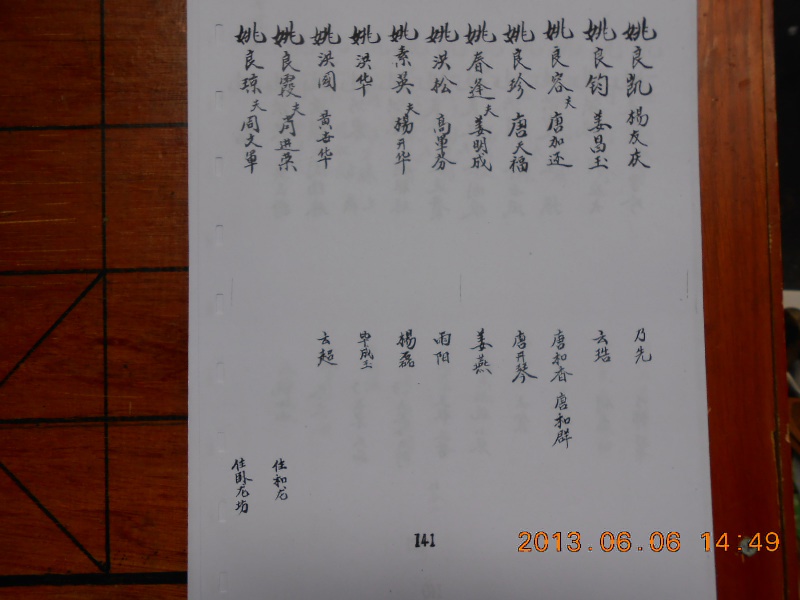 姚良凯 杨友庆 乃先
姚良钧 姜昌玉 云琣
姚良容 夫 唐加还 唐和香 唐和辟
姚良珍 唐天福 唐开琴
姚春逢 夫 姜明成 姜燕
姚洪松 高军芬 雨阳
姚素英 夫 杨开华 杨磊
姚洪华 毕成玉
姚洪国 黄吉华 云超
姚良霞 夫 苟进荣 住和龙
姚良琼 夫 周文军 住卧龙坊
141
2013.06.06 14:49